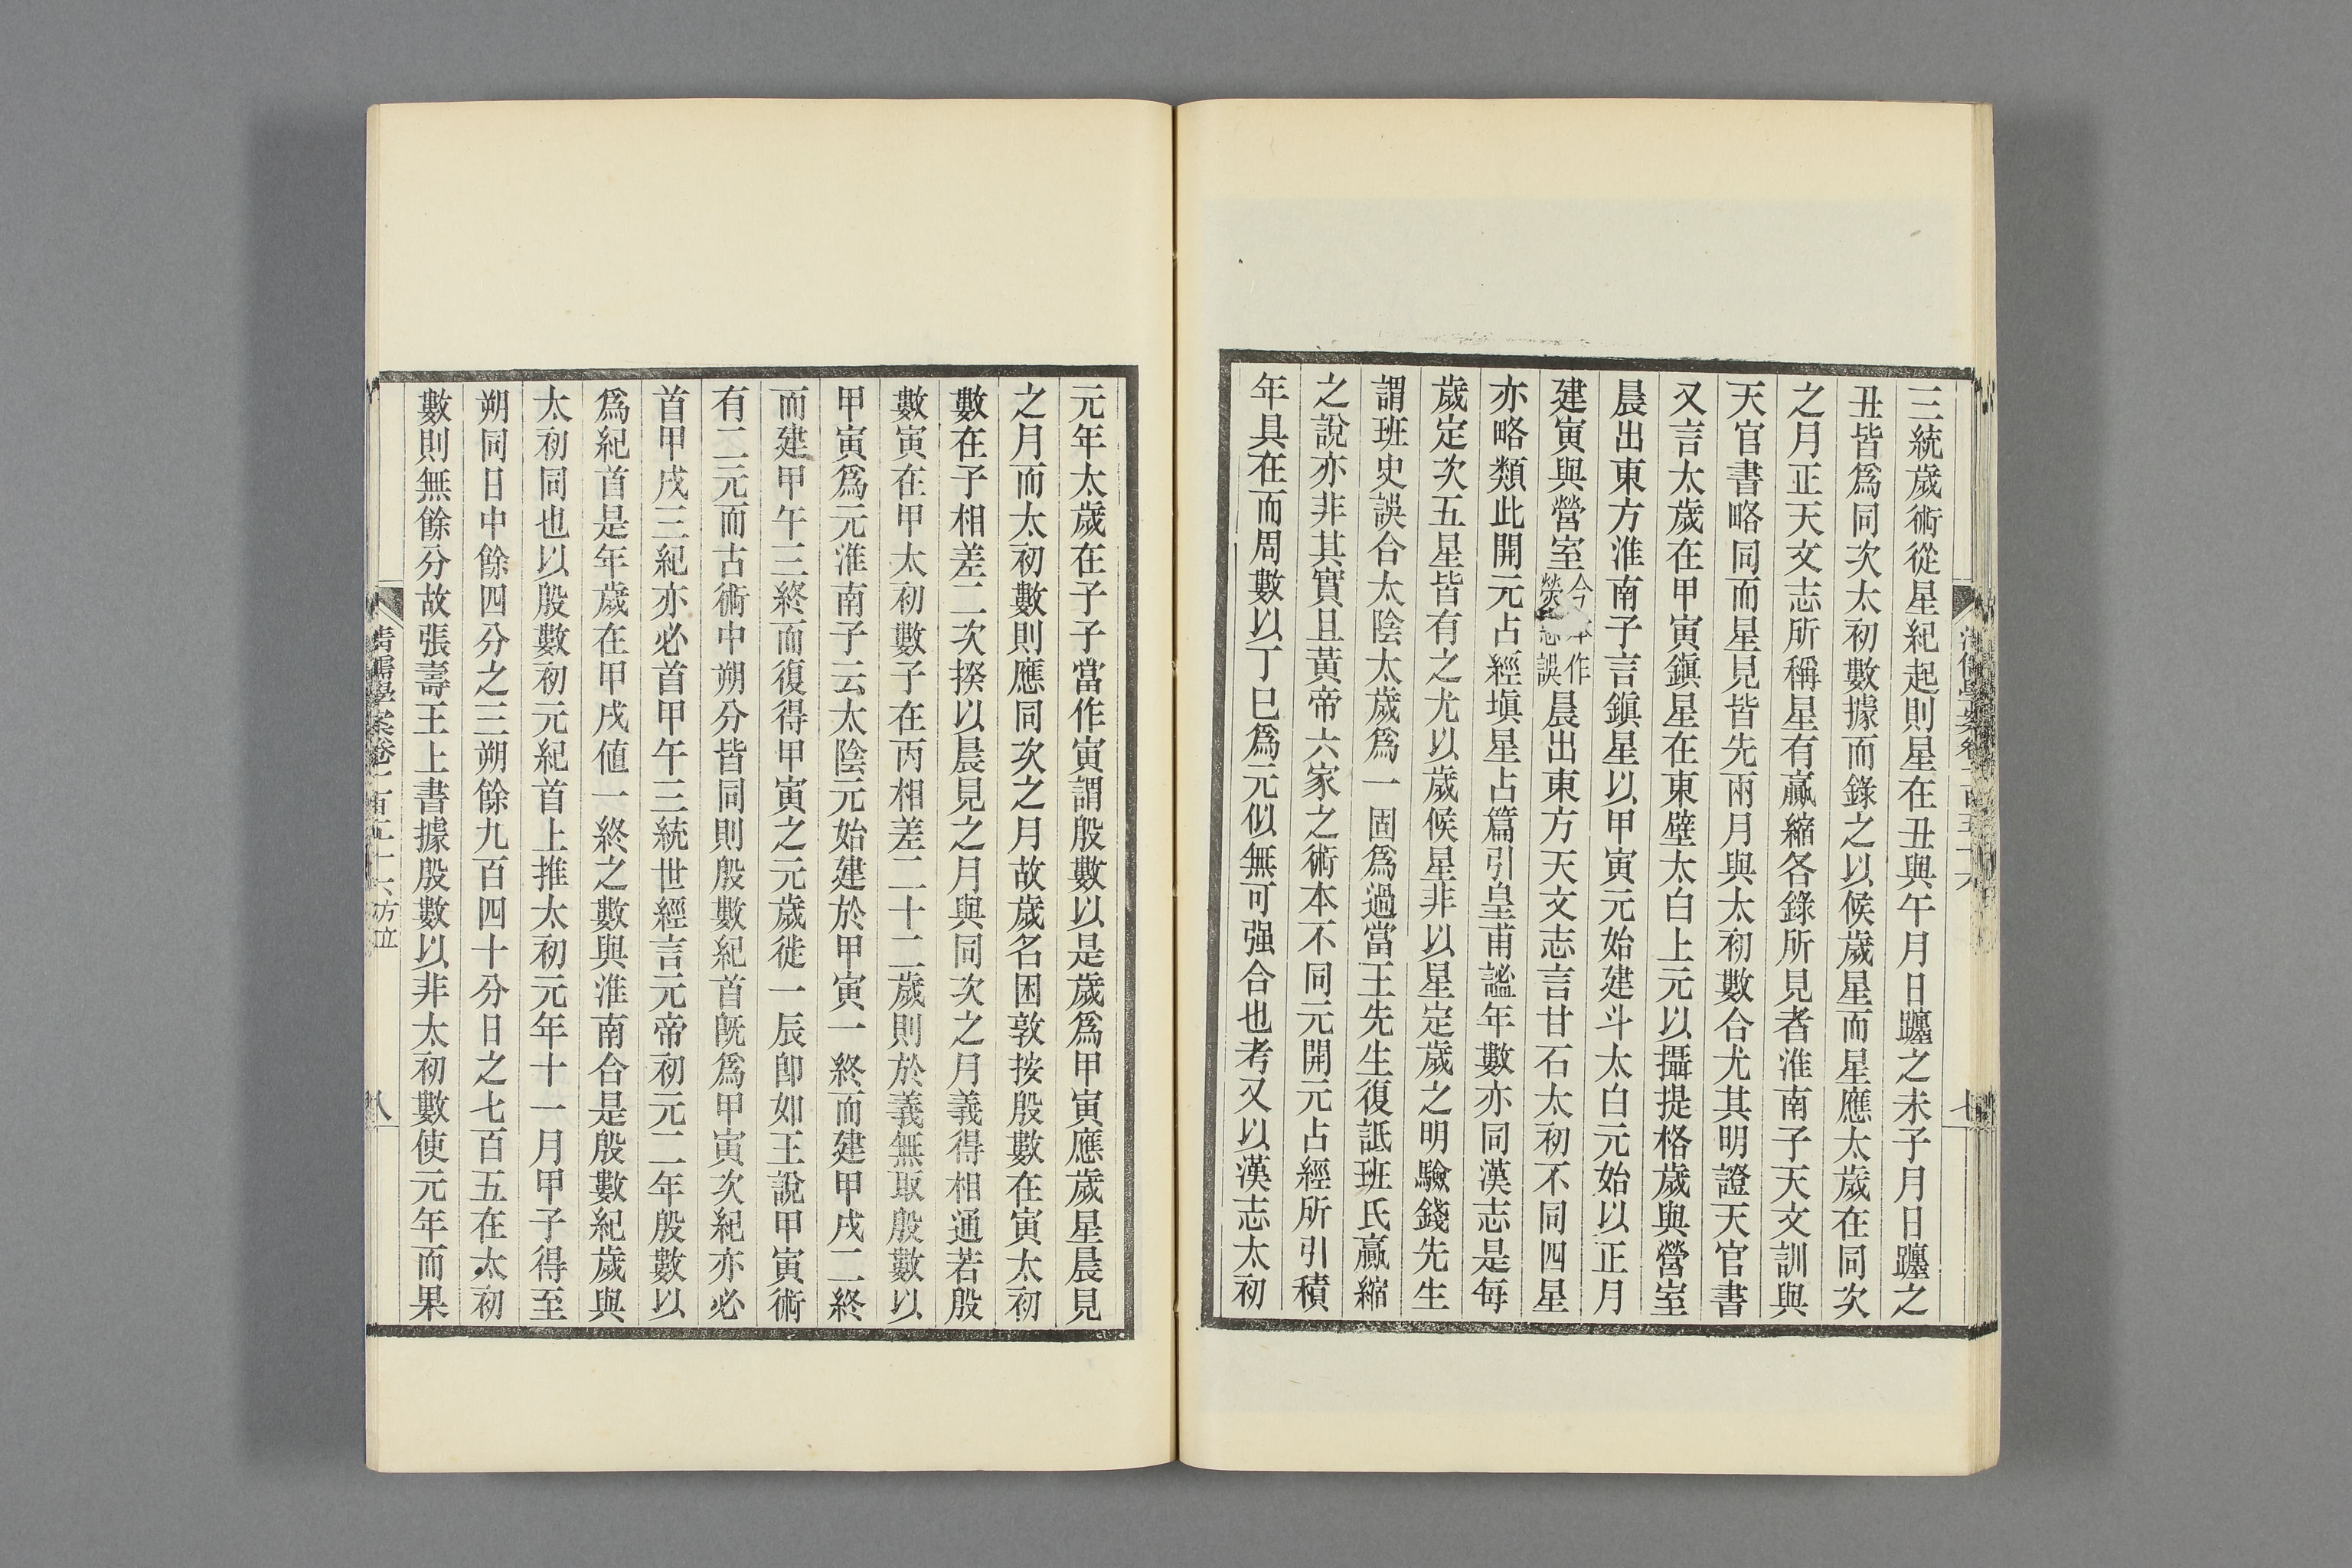 三統歲術從星紀起則星在丑與午月日躔之未子月日躔之
丑皆爲同次太初數據而錄之以候歲星而星應太歲在同次
之月正天文志所稱星有贏縮各錄所見者淮南子天文訓與
天官書略同而星見皆先兩月與太初數合尤其明證天官書
又言太歲在甲寅鎭星在東壁太白上元以攝提格歲與營室
晨出東方淮南子言鎭星以甲寅元始建斗太白元始以正月
建寅與營室今本作熒惑誤晨出東方天文志言甘石太初不同四星
亦略類此開元占經塡星占篇引皇甫謐年數亦同漢志是每
歲定次五星皆有之尤以歲候星非以星定歲之明驗錢先生
謂班史誤合太陰太歲爲一固爲過當王先生復詆班氏贏縮
之說亦非其實且黃帝六家之術本不同元開元占經所引積
年具在而周數以丁巳爲元似無可强合也考又以漢志太初
清儒學案卷一百五十六
七
元年太歲在子子當作寅謂殷數以是歲爲甲寅應歲星晨見
之月而太初數則應同次之月故歲名困敦按殷數在寅太初
數在子相差二次揆以晨見之月與同次之月義得相通若殷
數寅在甲太初數子在丙相差二十二歲則於義無取殷數以
甲寅爲元淮南子云太陰元始建於甲寅一終而建甲戌二終
而建甲午三終而復得甲寅之元歲徙一辰卽如王說甲寅術
有二元而古術中朔分皆同則殷數紀首旣爲甲寅次紀亦必
首甲戌三紀亦必首甲午三統世經言元帝初元二年殷數以
爲紀首是年歲在甲戌値一終之數與淮南合是殷數紀歲與
太初同也以殷數初元紀首上推太初元年十一月甲子得至
朔同日中餘四分之三朔餘九百四十分日之七百五在太初
數則無餘分故張壽王上書據殷數以非太初數使元年而果
清儒學案卷一百五十六 方立
八